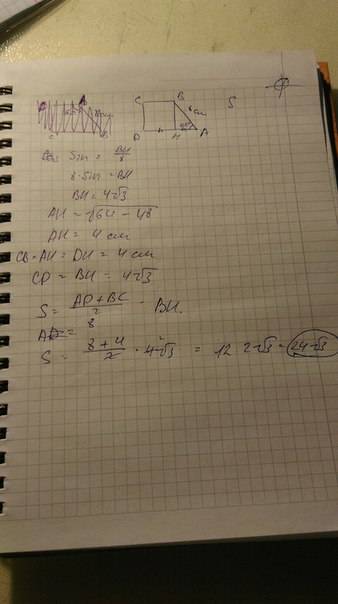 C B 8 см S
D H 60° A
Sin = BH/8
8·Sin = BH
BH = 4√3
AH = √64 - 48
AH = 4 см
CB = AH = DH = 4 см
CD = BH = 4√3
S = AD + BC / 2 · BH.
AD = 8
S = 8 + 4 / 2 · 4√3 = 12 · 2√3 = 24√3